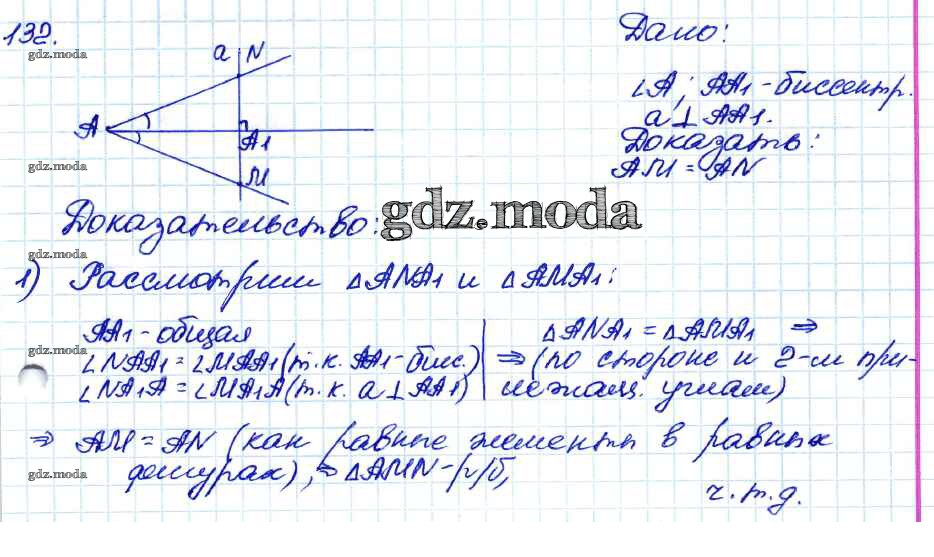 132.
gdz.moda
a N
A
A1
M
gdz.moda
Дано:
∠A; AA1 - биссектр.
a ⊥ AA1.
Доказать:
AM = AN
Доказательство:
gdz.moda
gdz.moda
1) Рассмотрим △ANA1 и △AMA1:
gdz.moda
AA1 - общая
∠NAA1 = ∠MAA1 (т.к. AA1 - бис.)
∠NA1A = ∠MA1A (т.к. a ⊥ AA1)
△ANA1 = △AMA1 ⇒
⇒ (по стороне и 2-м при-
лежащ. углам)
gdz.moda
⇒ AM = AN (как равные элементы в равных
фигурах), ⇒ △AMN - р/б,
gdz.moda
ч.т.д.
gdz.moda